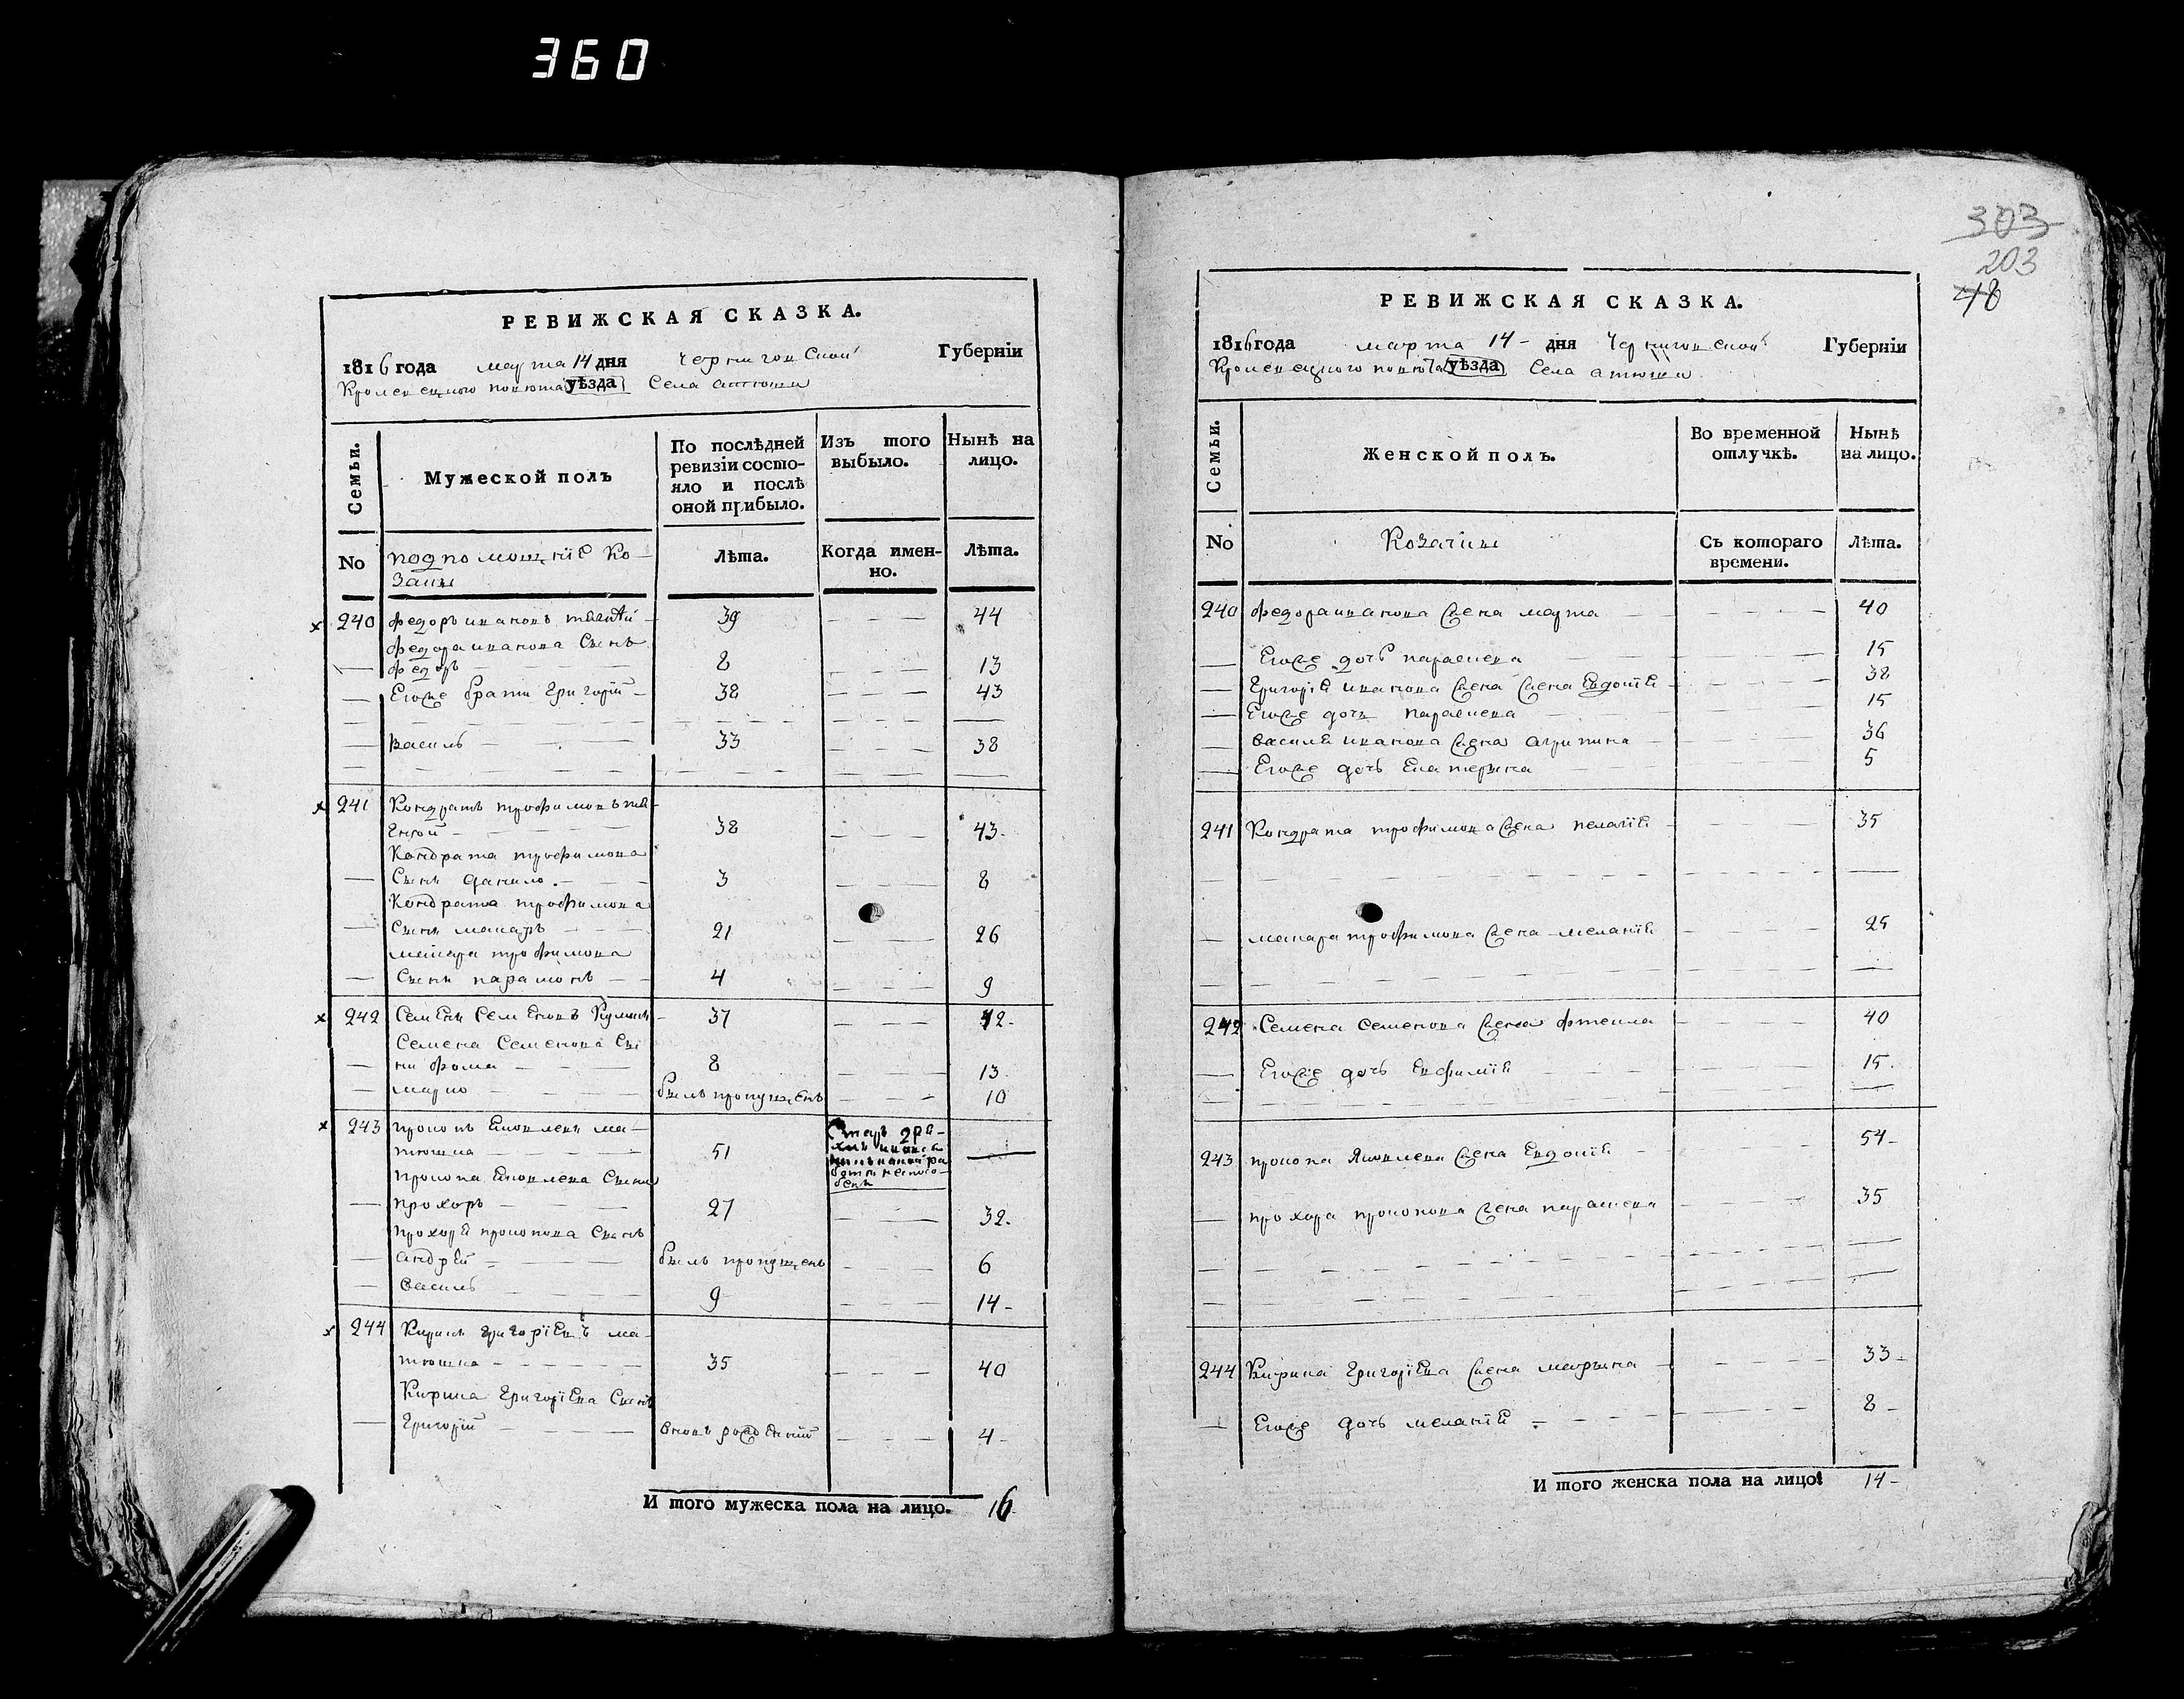 360
РЕВИЖСКАЯ СКАЗКА.
1816 года марта 14 дня Черниговской Губерніи
Кролевецкого повета уѣзда Села
Семьи.
Мужеской полъ
По послѣдней
ревизіи состо-
яло и послѣ
оной прибыло.
Изъ того
выбыло.
Нынѣ на
лицо.
No
подпомощніе Ко-
заки
Лѣта.
Когда имен-
но.
Лѣта.
240 Федоръ Ивановъ 39 44
Федора Иванова Сынъ
Федоръ 8 13
Егоже братъ Григорій 38 43
Василь 33 38
241 Кондратъ Трофимовъ
38 43
Кондрата Трофимова
Сынъ Данило 3 8
Кондрата Трофимова
Сынъ Макаръ 21 26
Макара Трофимова
Сынъ Парамонъ 4 9
242 Семенъ Семеновъ 37 42
Семена Семенова Сы
нъ Фома 8 13
Марко былъ пропущенъ 10
243 Прокопъ Яковлевъ Ма-
тюшка 51
Прокопа Яковлева Сынъ
Прохоръ 27 32
Прохора Прокопова Сынъ
Андрей былъ пропущенъ 6
Василь 9 14
244 Кирикъ Григоріевъ Ма-
тюшка 35 40
Кирика Григоріева Сынъ
Григорій вновь рожденній 4
И того мужеска пола на лицо. 16
303
203
48
РЕВИЖСКАЯ СКАЗКА.
1816 года марта 14 дня Черниговской Губерніи
Кролевецкого повета уѣзда Села
Семьи.
Женской полъ.
Во временной
отлучкѣ.
Нынѣ
на лицо.
No
Козачки
Съ котораго
времени.
Лѣта.
240 Федора Иванова Жена Марта 40
Егоже дочь Параскева 15
Григорія Иванова Жена Евдокія 38
Егоже дочь Параскева 15
Василя Иванова Жена Агрипина 36
Егоже дочь Екатерина 5
241 Кондрата Трофимова Жена Пелагія 35
Макара Трофимова Жена Меланія 25
242 Семена Семенова Жена Фтекла 40
Егоже дочь Евфимія 15
243 Прокопа Яковлева Жена Евдокія 54
Прохора Прокопова Жена Параскева 35
244 Кирика Григоріева Жена Марына 33
Егоже дочь Меланія 8
И того женска пола на лицо: 14